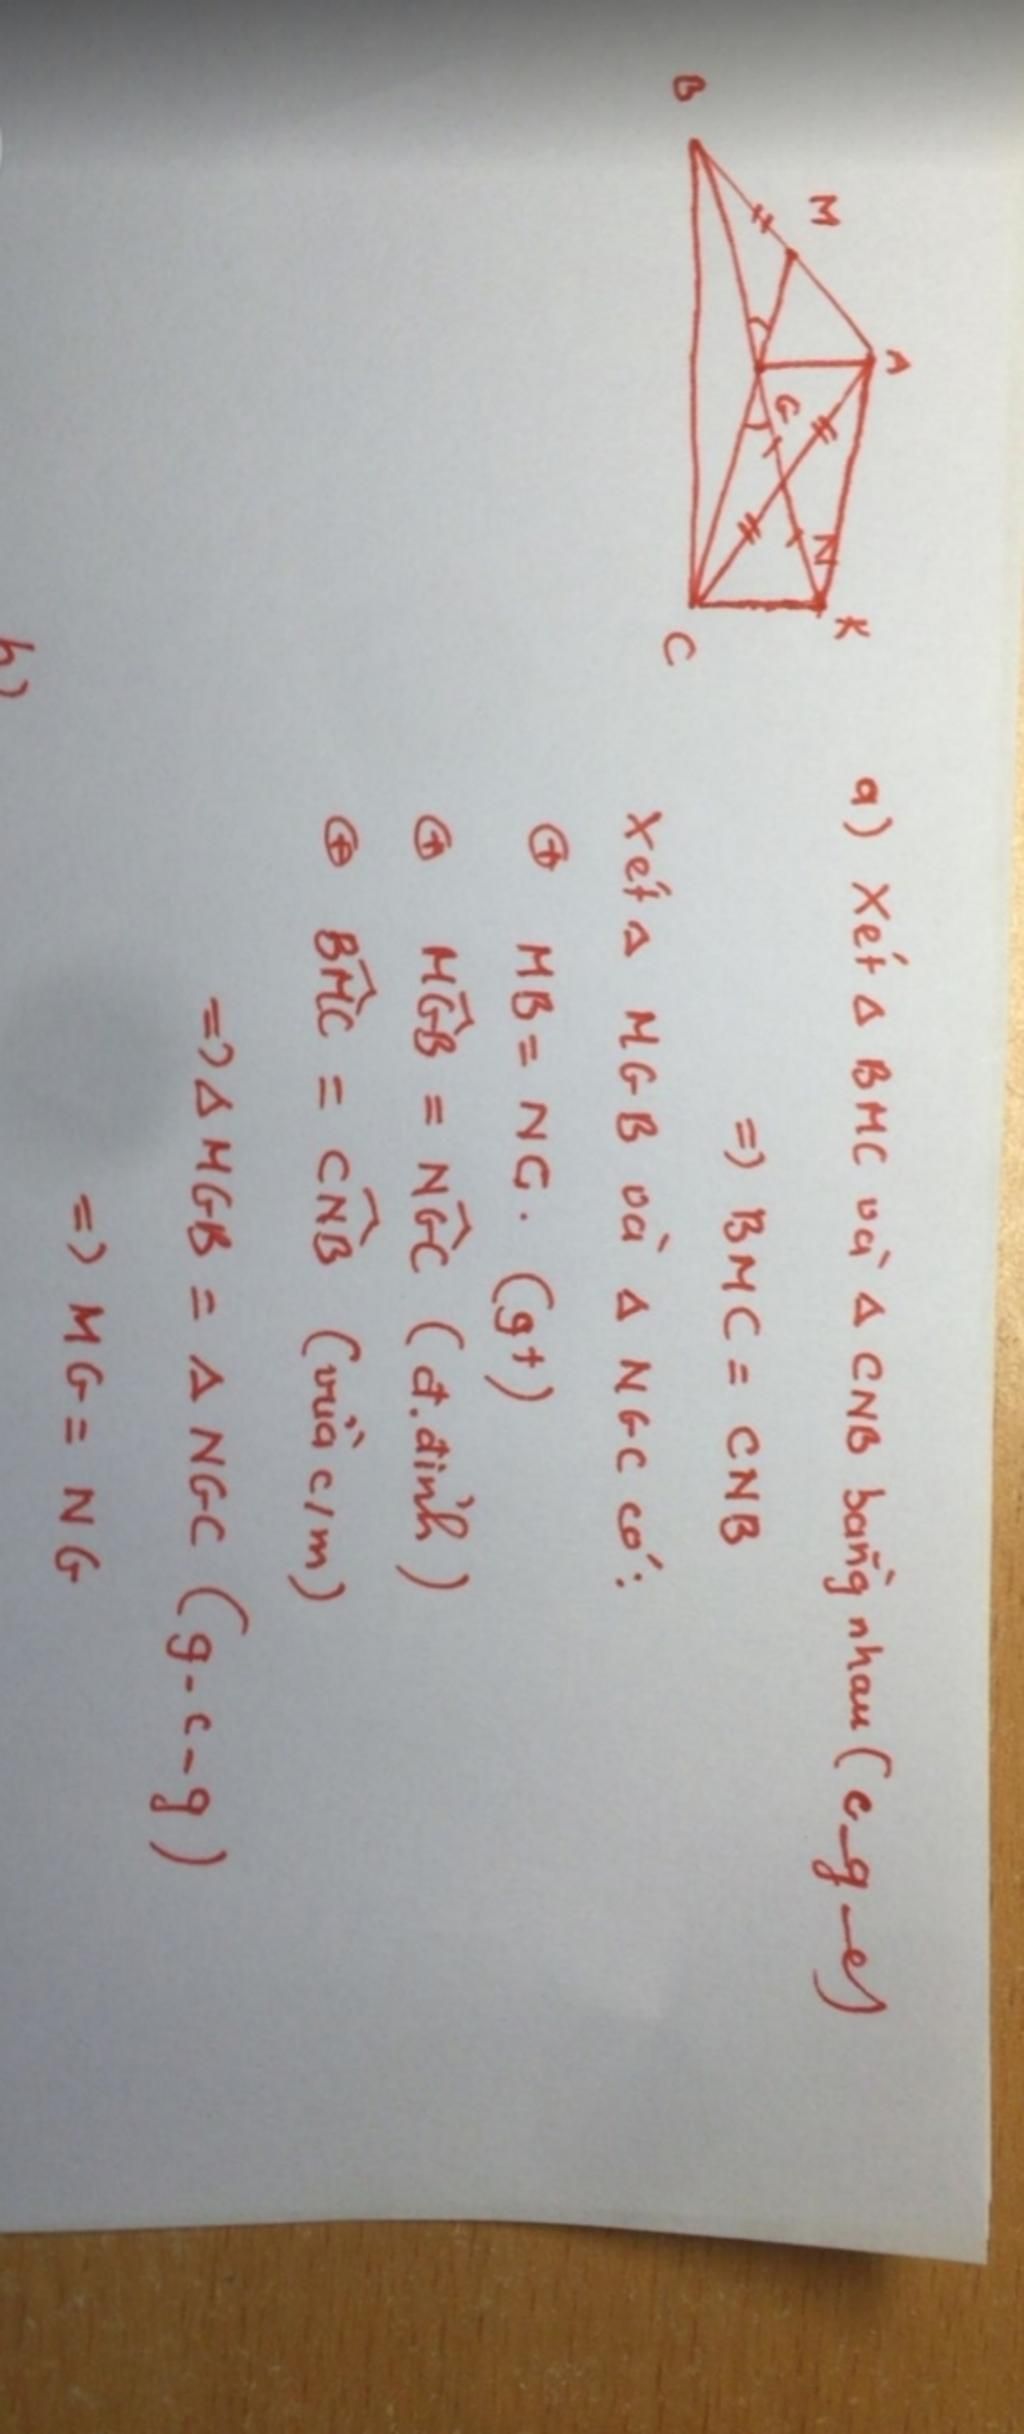 B
M
A
G
N
K
C
a) Xét Δ BMC và Δ CNB bằng nhau (c-g-c)
=> BMC = CNB
Xét Δ MGB và Δ NGC có:
⊕ MB = NC. (gt)
⊕ MGB = NGC (đ.đỉnh)
⊕ BMC = CNB (vừa c/m)
=> Δ MGB = Δ NGC (g-c-g)
=> MG = NG
b)